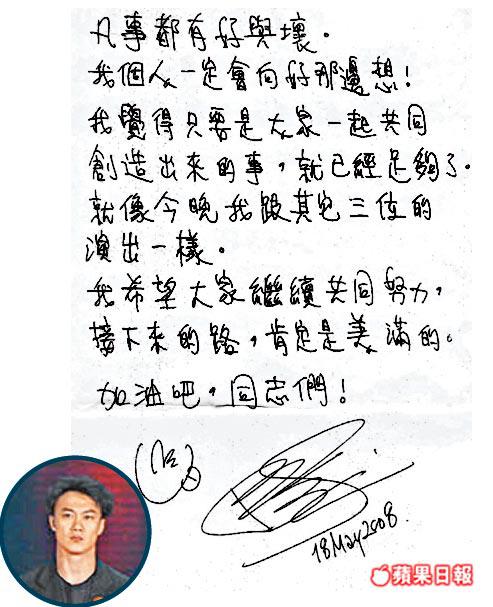 凡事都有好與壞。
我個人一定會向好那邊想！
我覺得只要是大家一起共同
創造出來的事，就已經足夠了。
就像今晚我跟其它三位的
演出一樣。
我希望大家繼續共同努力，
接下來的路，肯定是美滿的。
加油吧，同志們！
18 May 2008.
蘋果日報